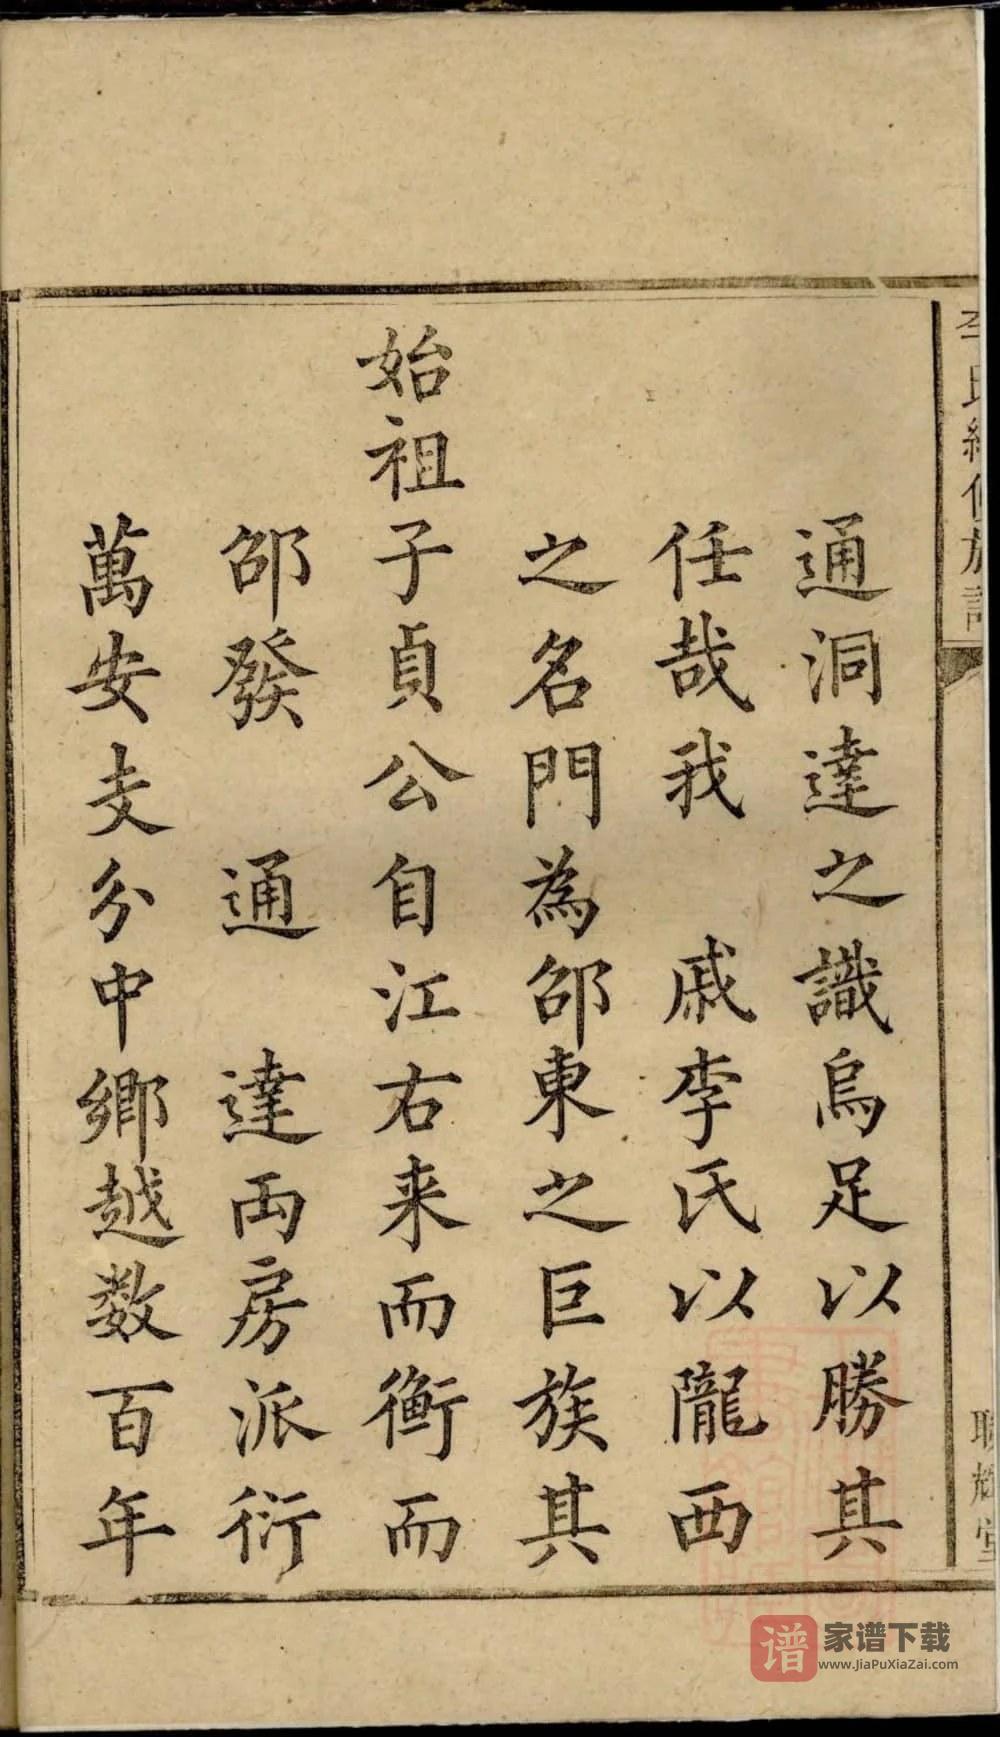 李氏續修族譜
通洞達之識烏足以勝其
任哉我 戚李氏以隴西
之名門為邵東之巨族其
始祖子貞公自江右来而衡而
邵發 通 達両房派衍
萬安支分中鄉越数百年
家谱下载
www.JiaPuXiaZai.com